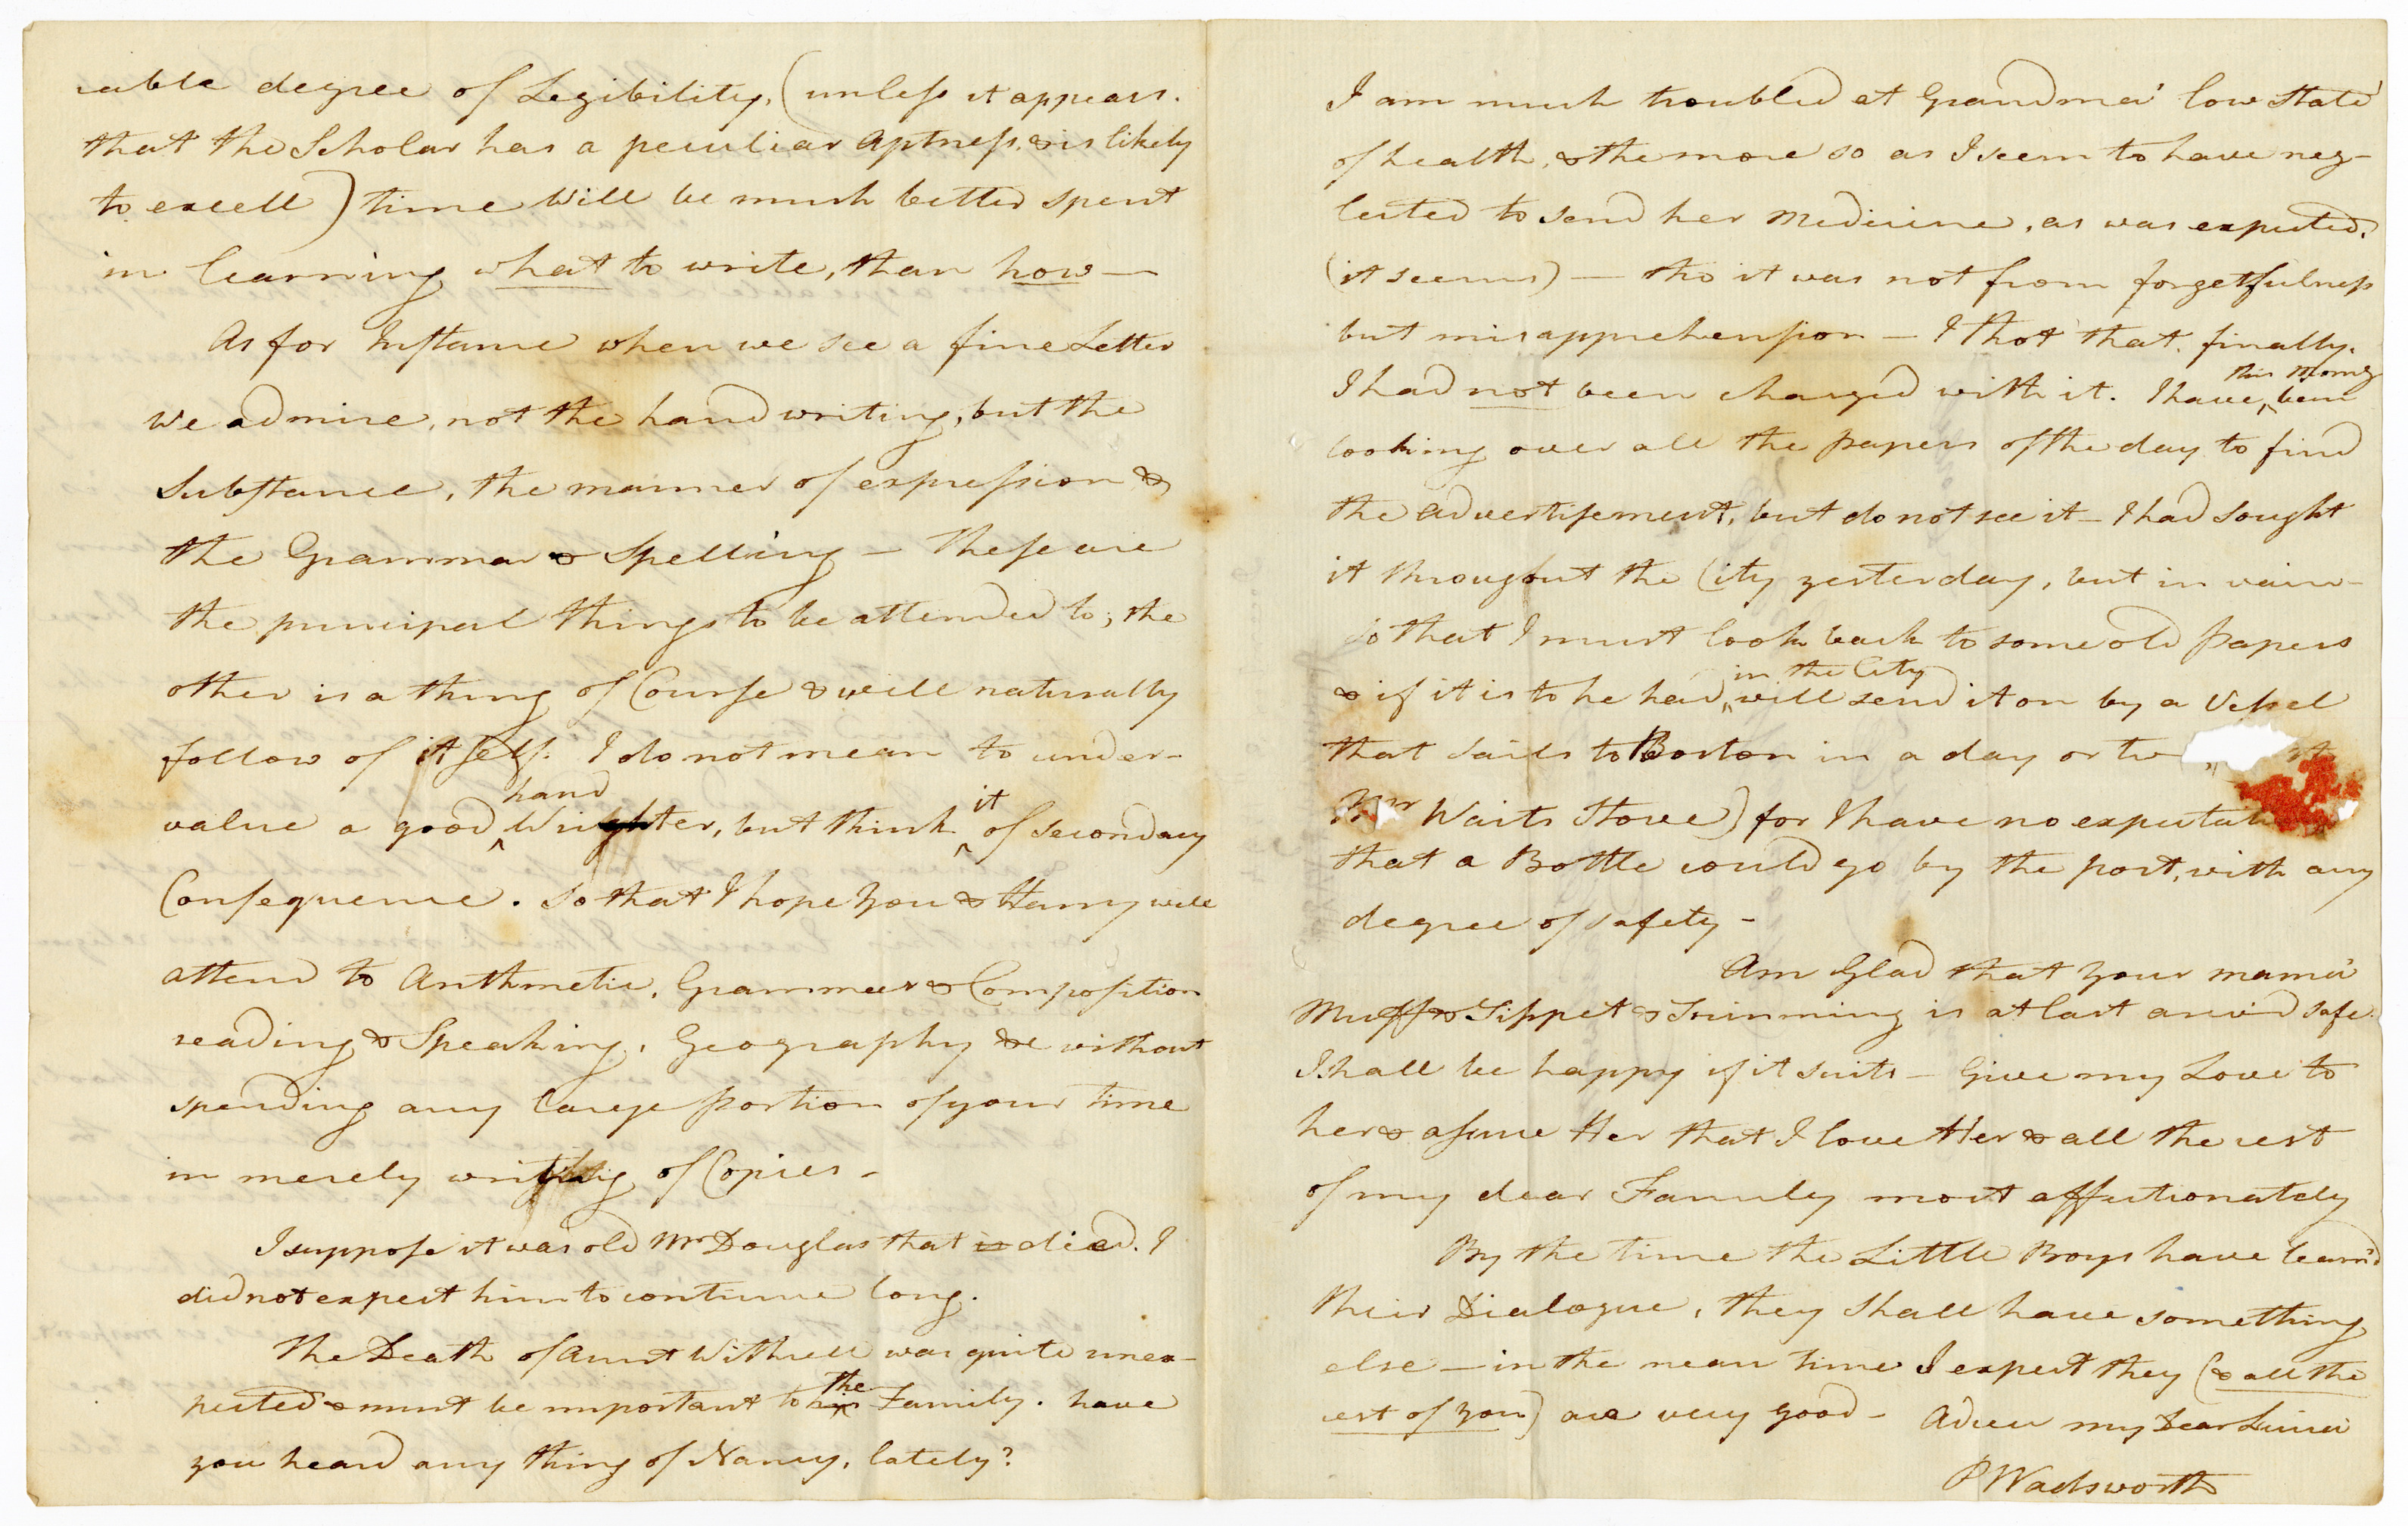 rable degree of Legibility, (unless it appears.
that the Scholar has a peculiar Aptness, & is likely
to excell) time Will be much better spent
in learning what to write, than how—
As for Instance when we see a fine Letter
we admire, not the hand writing, but the
Substance, the manner of expression &
the Grammar & Spelling – These are
the principal things to be attended to; the
other is a thing of Course & will naturally
follow of itself. I do not mean to under-
hand it
value a good Writer, but think of secondary
Consequence. So that I hope You & Harry will
attend to Arithmetic, Grammar & Composition
reading & Speaking, Geography &c without
spending any large portion of your time
in merely writing of Copies –
I suppose it was old Mr Douglas that is died. I
did not expect him to continue long.
The Death of Aunt Withrell was quite unex-
the
pected & must be important to his Family. have
you heard any thing of Nancy, lately?
I am much troubled at Grandma' low State
of health, & the more so as I seem to have neg-
lected to send her Medicine, as was expected,
(it seems) — tho it was not from forgetfulness
but misapprehension – I thot that, finally,
this morng
I had not been charged with it. I have been
looking over all the papers of the day to find
the advertisement, but do not see it – I had sought
it throughout the City yesterday, but in vain –
So that I must look back to some old papers
in the City
& if it is to be had, will send it on by a Vessel
that sails to Boston in a day or tw
Mr Waits Store) for I have no expectati
that a Bottle could go by the post, with any
degree of safety –
Am Glad that your mama'
Muff & Tippet & Trimming is at last arriv'd safe.
I shall be happy if it suits – Give my Love to
her & assure Her that I love Her & all the rest
of my dear Family most affectionately
By the time the Little Boys have learn'd
their Dialogue, they Shall have something
else – in the mean time I expect they (& all the
rest of you) are very good – Adieu my Dear
P Wadsworth